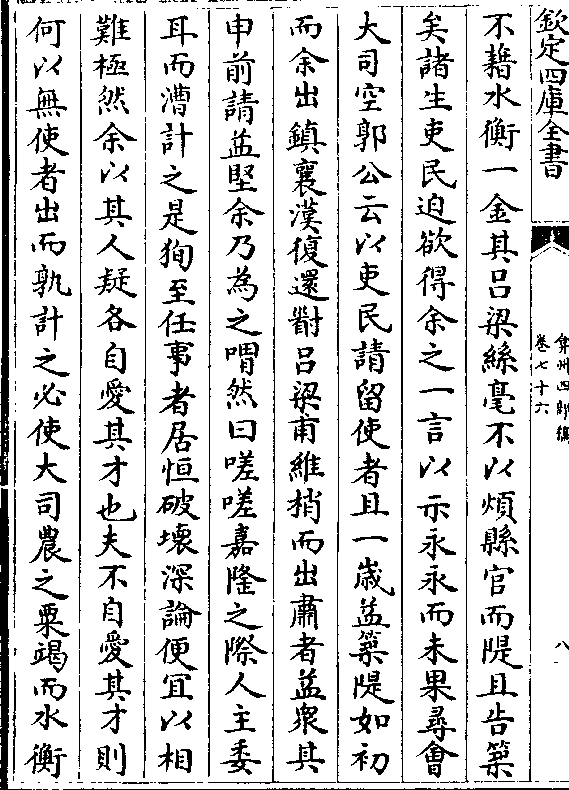 欽定四庫全書
弇州四部稿
卷七十六
八
不藉水衡一金其呂梁絲毫不以煩縣官而隄且告築
矣諸生吏民迫欲得余之一言以示永永而未果尋會
大司空郭公云以吏民請留使者且一歲益築隄如初
而余出鎮襄漢復還對呂梁甫維梢而出肅者益衆其
申前請益堅余乃為之喟然曰嗟嗟嘉隆之際人主委
耳而漕計之是狥至任事者居恒破壞深論便宜以相
難極然余以其人疑各自愛其才也夫不自愛其才則
何以無使者出而孰計之必使大司農之粟竭而水衡